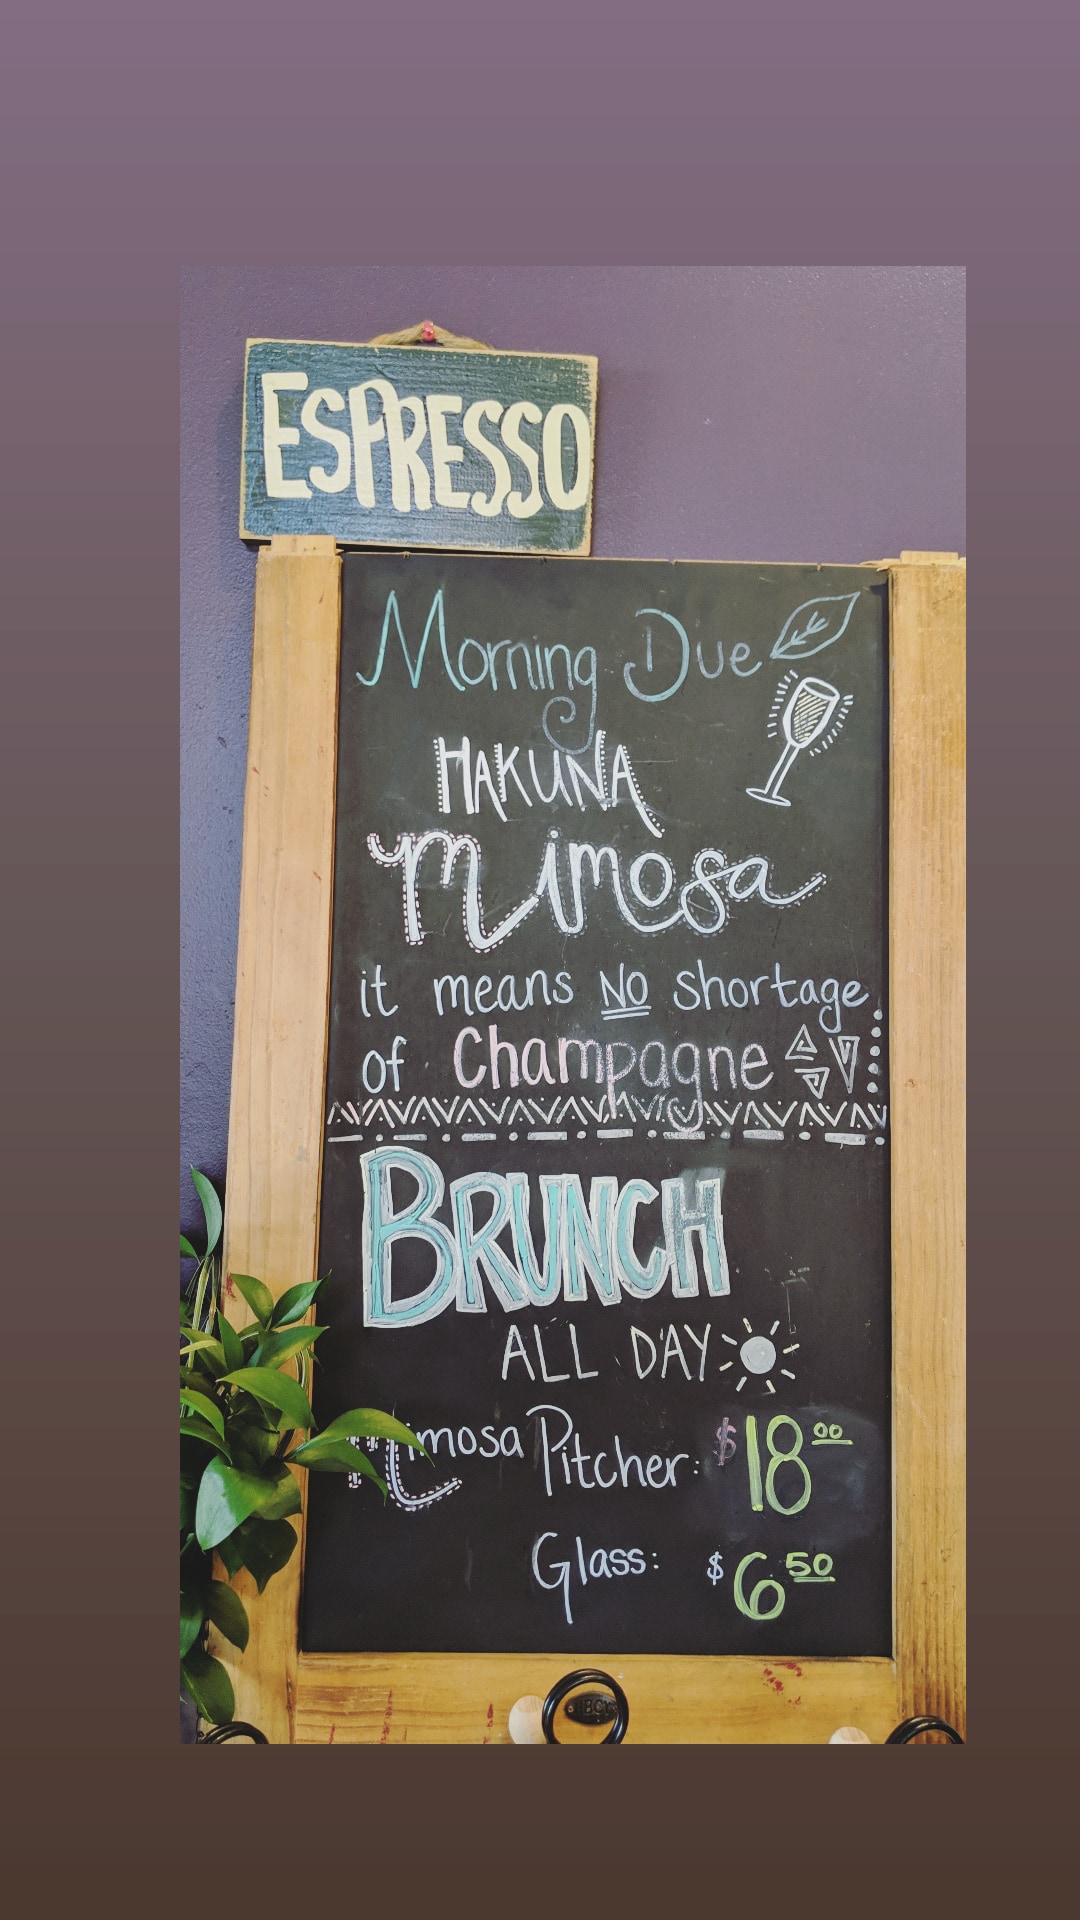 ESPRESSO
Morning Due
HAKUNA
Mimosa
it means NO shortage
of Champagne
BRUNCH
ALL DAY
Mimosa Pitcher: $18.00
Glass: $6.50